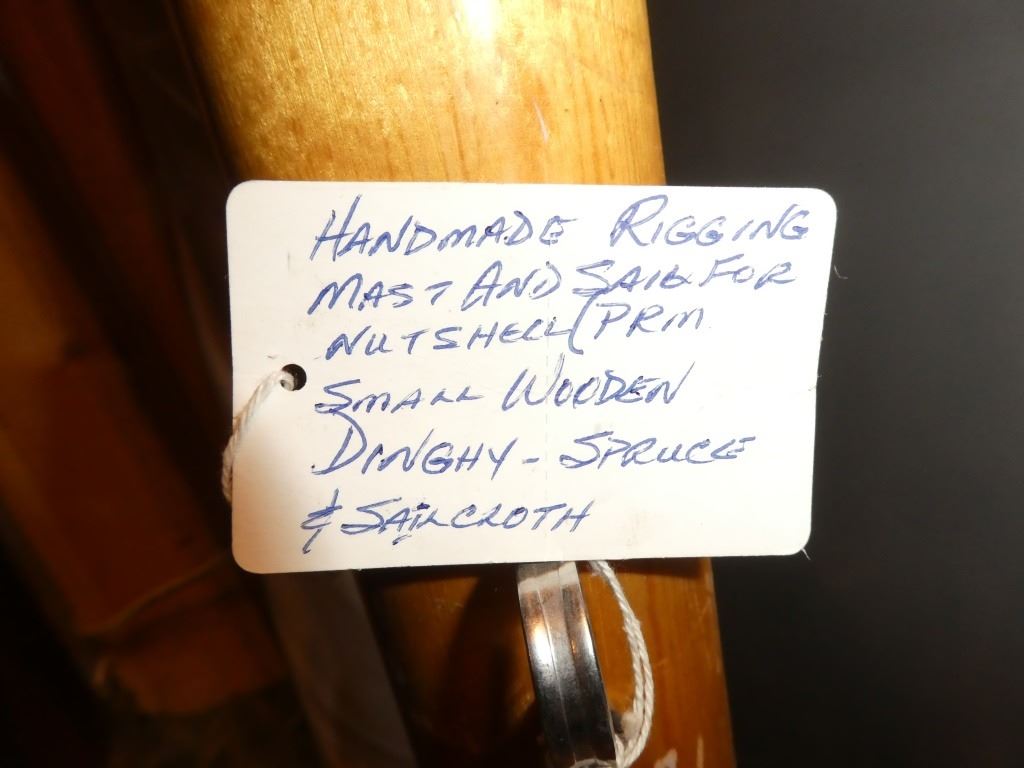 HANDMADE RIGGING
MAST AND SAIL FOR
NUTSHELL (PRM
SMALL WOODEN
DINGHY - SPRUCE
& SAILCLOTH